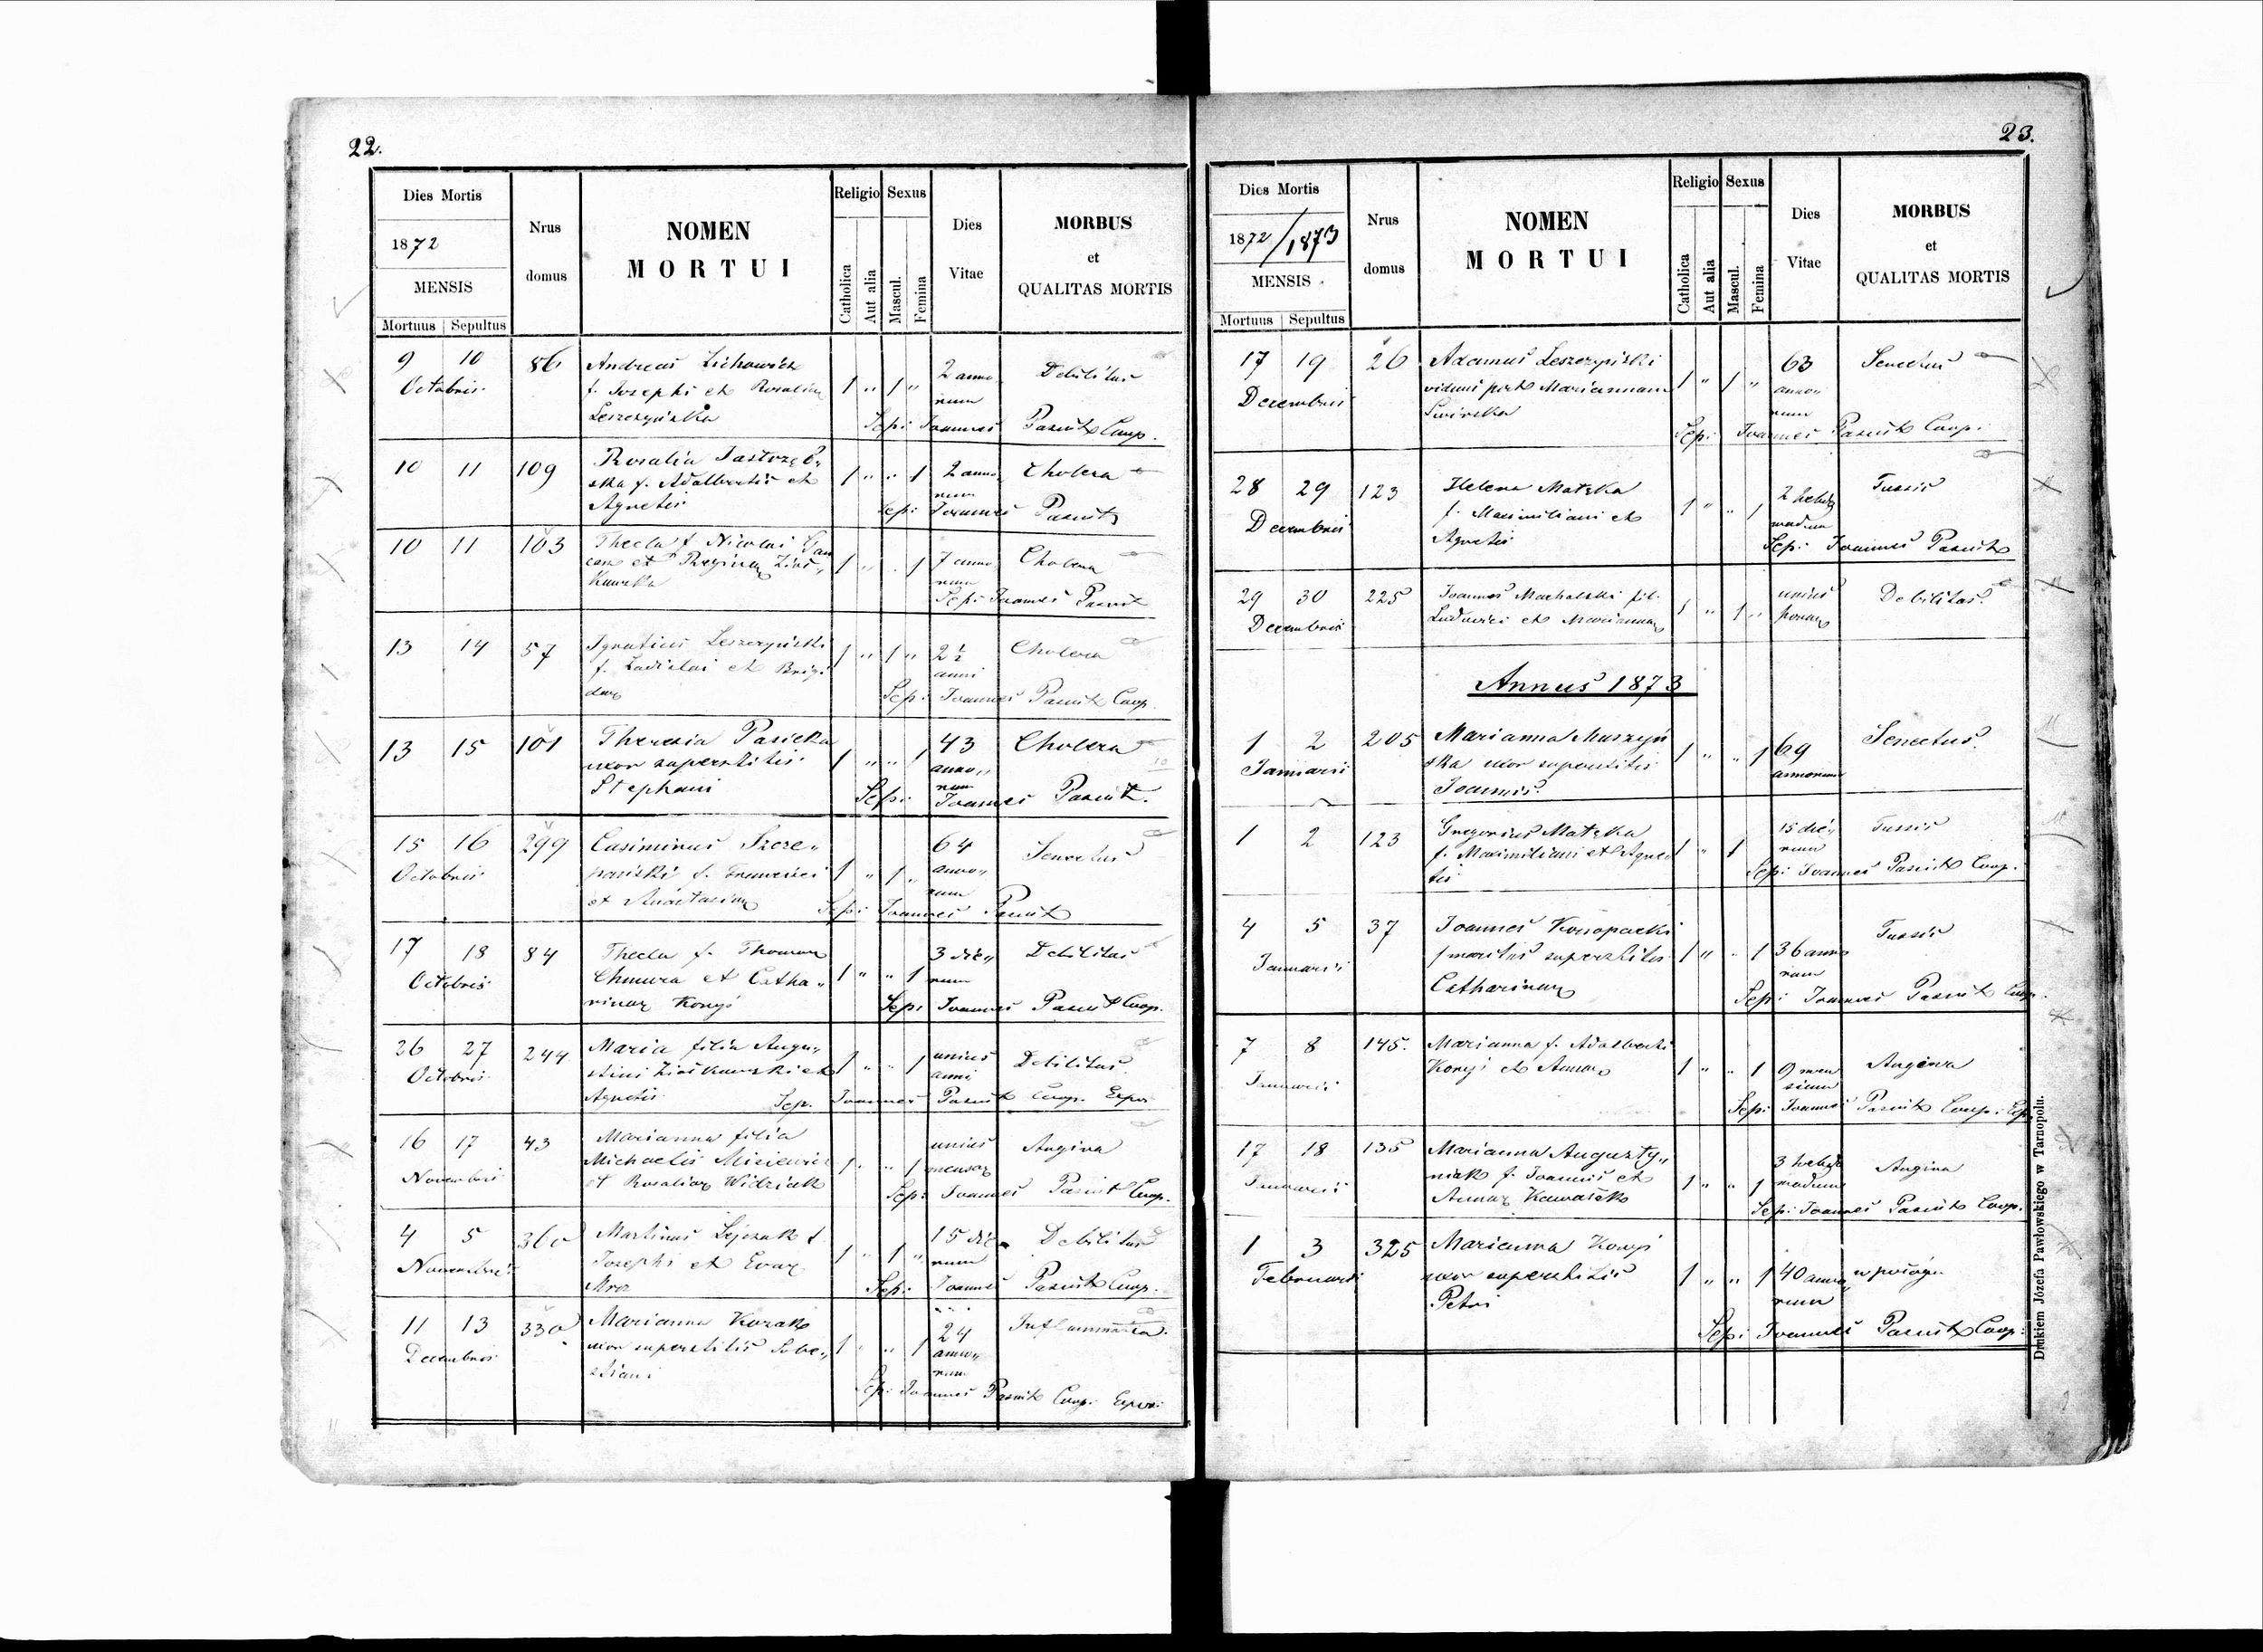 22.
Dies Mortis
1872
MENSIS
Mortuus Sepultus
Nrus
domus
NOMEN
MORTUI
Religio
Catholica
Aut alia
Sexus
Mascul.
Femina
Dies
Vitae
MORBUS
et
QUALITAS MORTIS
9 10 86 Andreas Lichowicz 2 anno Debilitas
Octobris f. Josephi et Rosaliae 1 " 1 " rum
Leszczyńska Sepi: Joannes Pasiut Coop.
10 11 109 Rosalia Jastrzęb" 2 anno Cholera
ska f. Adalberti et 1 " " 1 rum
Agnetis Sepi: Joannes Pasiut
10 11 103 Thecla f. Nicolai 7 anno Cholera
et Reginae 1 " . 1 rum
Sepi: Joannes Pasiut
13 14 57 Ignatius Leszczyński 1 " 1 " 2½ Cholera
f. Ladislai et Brigi anni
dae Sepi: Joannes Pasiut Coop.
13 15 101 Theresia Pasieka 43 Cholera
uxor superstitis 1 " " 1 anno"
Stephani Sepi: rum Joannes Pasiut.
15 16 299 Casimirus Szcze" 64 Senectus
Octobris pański f. 1 " 1 " anno"
et Anastasiae rum
Sepi: Joannes Pasiut
17 18 84 Thecla f. Thomae 3 die" Debilitas
Octobris Chmura et Catha" 1 " " 1 rum
rinae Konyś Sepi: Joannes Pasiut Coop.
26 27 244 Maria filia Augu" unius Debilitas
Octobris stini et 1 " " 1 anni
Agnetis Sep. Joannes Pasiut Coop. Expos.
16 17 43 Marianna filia unius Angina
Novembris Michaelis Misiewicz 1 " " 1 mensae
et Rosaliae Widziak Sepi: Joannes Pasiut Coop.
4 5 360 Martinus f. 15 die Debilitas
Novembris Josephi et Evae 1 " 1 " rum
Mroz Sepi: Joannes Pasiut Coop.
11 13 330 Marianna Kozak 24 Inflammatio.
Decembris uxor superstitis Seba" 1 " " 1 anno"
stiani rum
Sepi: Joannes Pasiut Coop. Expos:
23.
Dies Mortis
1872/1873
MENSIS
Mortuus Sepultus
Nrus
domus
NOMEN
MORTUI
Religio
Catholica
Aut alia
Sexus
Mascul.
Femina
Dies
Vitae
MORBUS
et
QUALITAS MORTIS
17 19 26 Adamus Leszczyński 63 Senectus
Decembris viduus post Mariannam 1 " 1 " anno"
Swirska rum
Sepi: Joannes Pasiut Coop:
28 29 123 Helena Matzka 2 hebdo Tussis
Decembris f. Maximiliani et 1 " " 1 madum
Agnetis Sepi: Joannes Pasiut
29 30 225 Joannes Machalski fil. unius Debilitas.
Decembris Ludovici et Mariannae 1 " 1 " horae
Annus 1873
1 2 205 Marianna Muszyń 69 Senectus.
Januarii ska uxor superstitis 1 " " 1 annorum
Joannis.
1 2 123 Gregorius Matzka 15 die" Tussis
f. Maximiliani et Agne 1 " 1 rum
tis Sepi: Joannes Pasiut Coop.
4 5 37 Joannes Konopacki Tussis
Januarii maritus superstitis 1 " " 1 36 anno
Catharinae rum
Sepi: Joannes Pasiut Coop.
7 8 145. Marianna f. Adalberti Angina
Januarii Konyś et Annae 1 " " 1 9 men
sium
Sepi: Joannes Pasiut Coop: Exp.
17 18 135 Marianna Augusty" 3 hebdo Angina
Januarii niak f. Joannis et 1 " " 1 madum
Annae Kawałek Sepi: Joannes Pasiut Coop.
1 3 325 Marianna Konyś
Februarii uxor superstitis 1 " " 1 40 anno w połogu
Petri rum
Sepi: Joannes Pasiut Coop:
Drukiem Józefa Pawłowskiego w Tarnopolu.